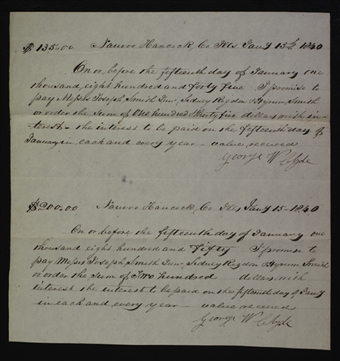 $135.00 Nauvoo Hancock Co Ills Jany 15th 1840
On or before the fifteenth day of January one
thousand eight hundred and forty five I promise to
pay Messrs Joseph Smith Jun, Sidney Rigdon Hyrum Smith
or order the Sum of One hundred thirty five dollars with in
terest the interest to be paid on the fifteenth day of
January in each and every year — value received
George W Clyde
$200.00 Nauvoo Hancock Co Ills Jany 15 — 1840
On or before the fifteenth day of January one
thousand eight hundred and Fifty I promise to
pay Messrs Joseph Smith Jun, Sidney Rigdon Hyrum Smith
or order the Sum of Two hundred dollars with
interest the interest to be paid on the fifteenth day of Jany
in each and every year — value received
George W Clyde